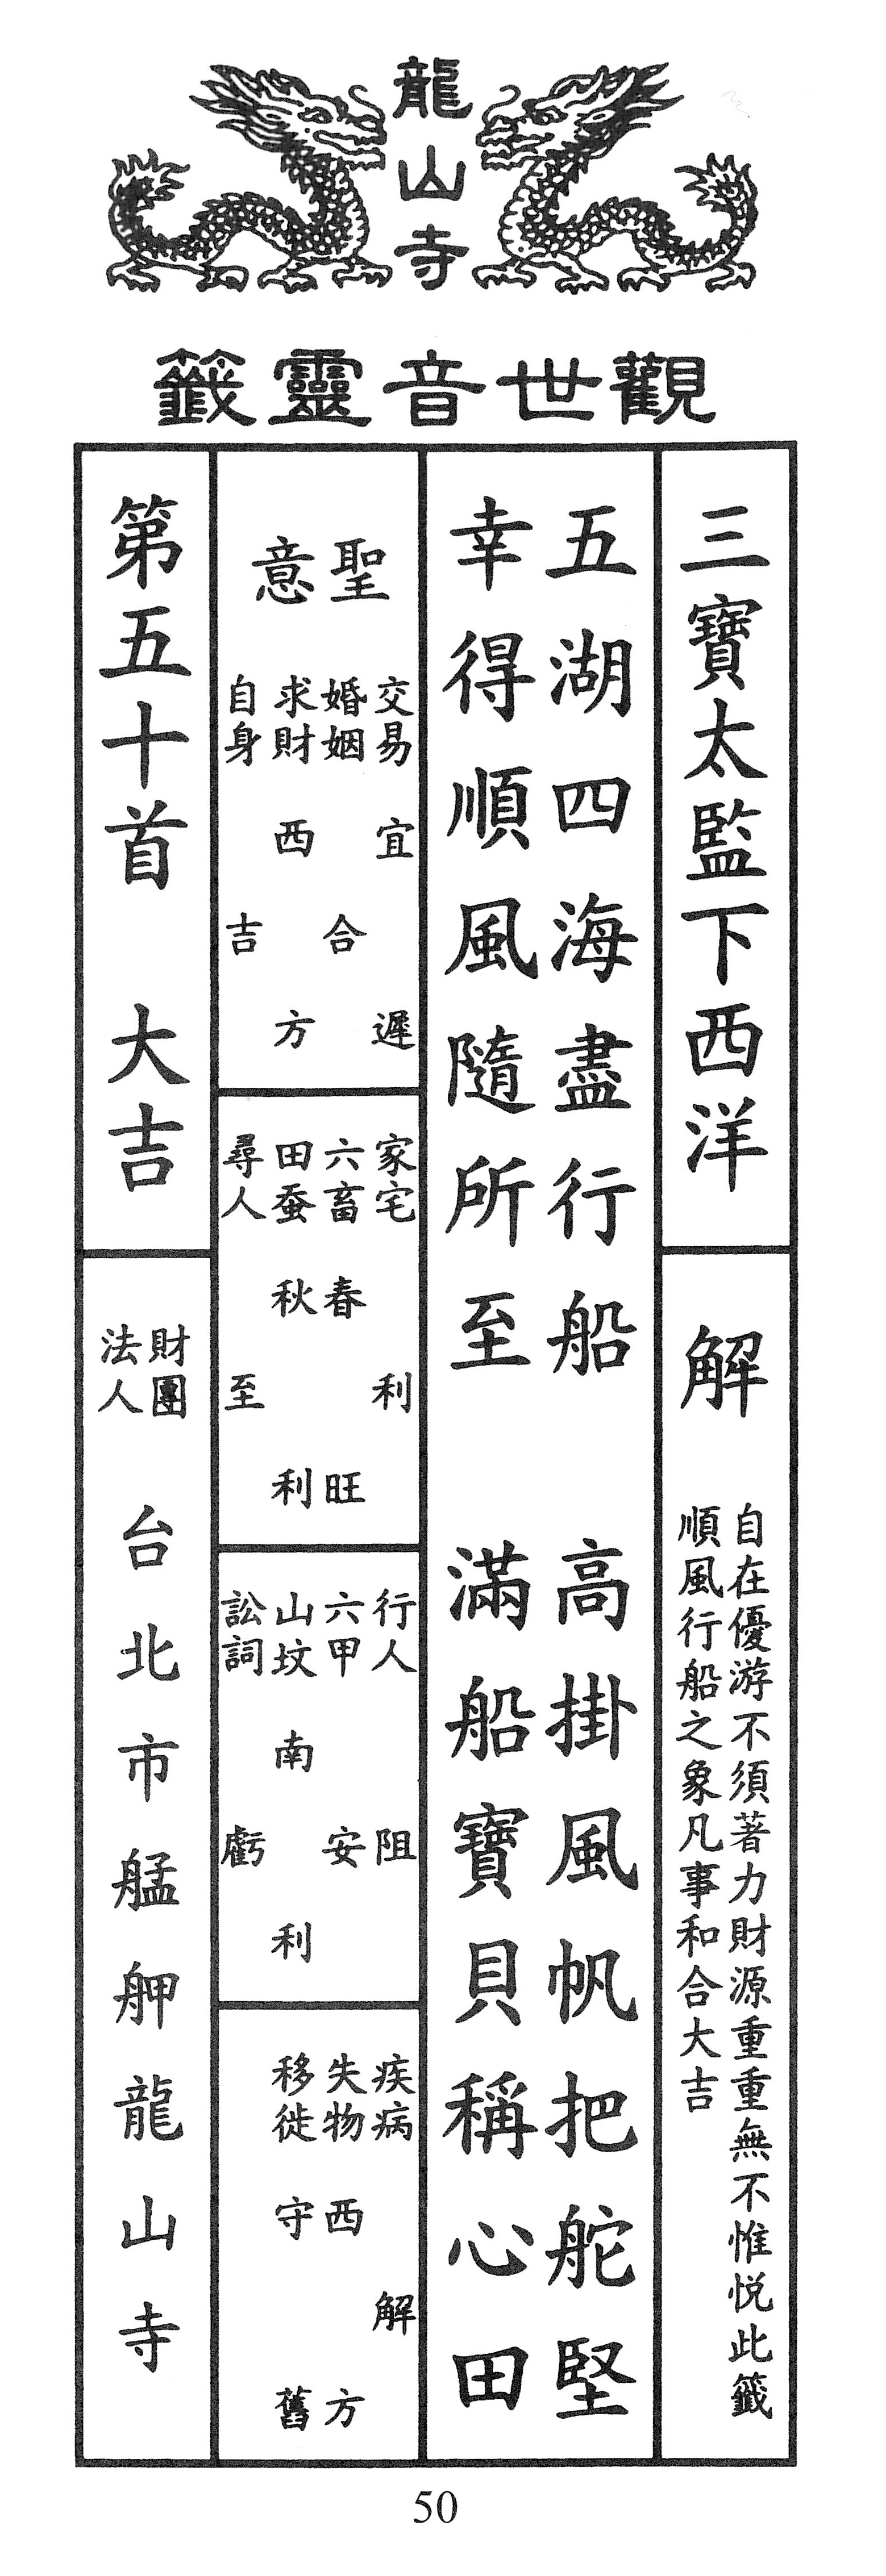 龍山寺
觀世音靈籤
三寶太監下西洋
解
自在優游不須著力財源重重無不惟悅此籤
順風行船之象凡事和合大吉
五湖四海盡行船　高掛風帆把舵堅
幸得順風隨所至　滿船寶貝稱心田
聖意
交易　宜遲
婚姻　合
求財　西方
自身　吉
家宅　利
六畜　春旺
田蚕　秋利
尋人　至
行人　阻
六甲　安
山坟　南利
訟詞　虧
疾病　解
失物　西方
移徙　守舊
第五十首　大吉
財團法人　台北市艋舺龍山寺
50